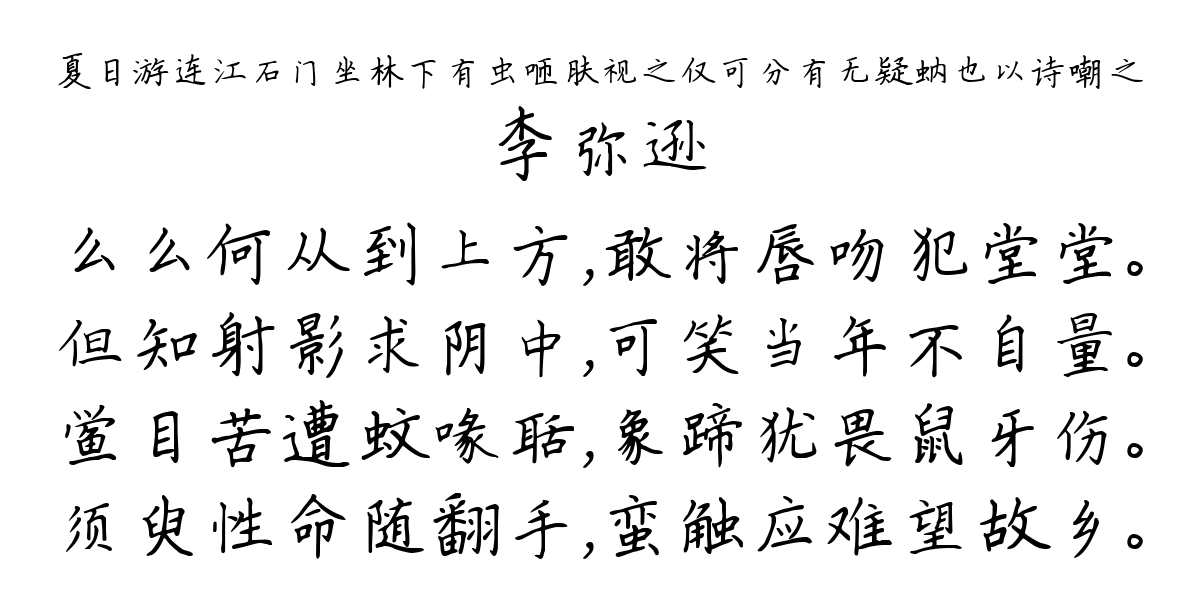 夏日游连江石门坐林下有虫咂肤视之仅可分有无疑蚋也以诗嘲之
李弥逊
么么何从到上方,敢将唇吻犯堂堂。
但知射影求阴中,可笑当年不自量。
鲎目苦遭蚊喙聒,象蹄犹畏鼠牙伤。
须臾性命随翻手,蛮触应难望故乡。